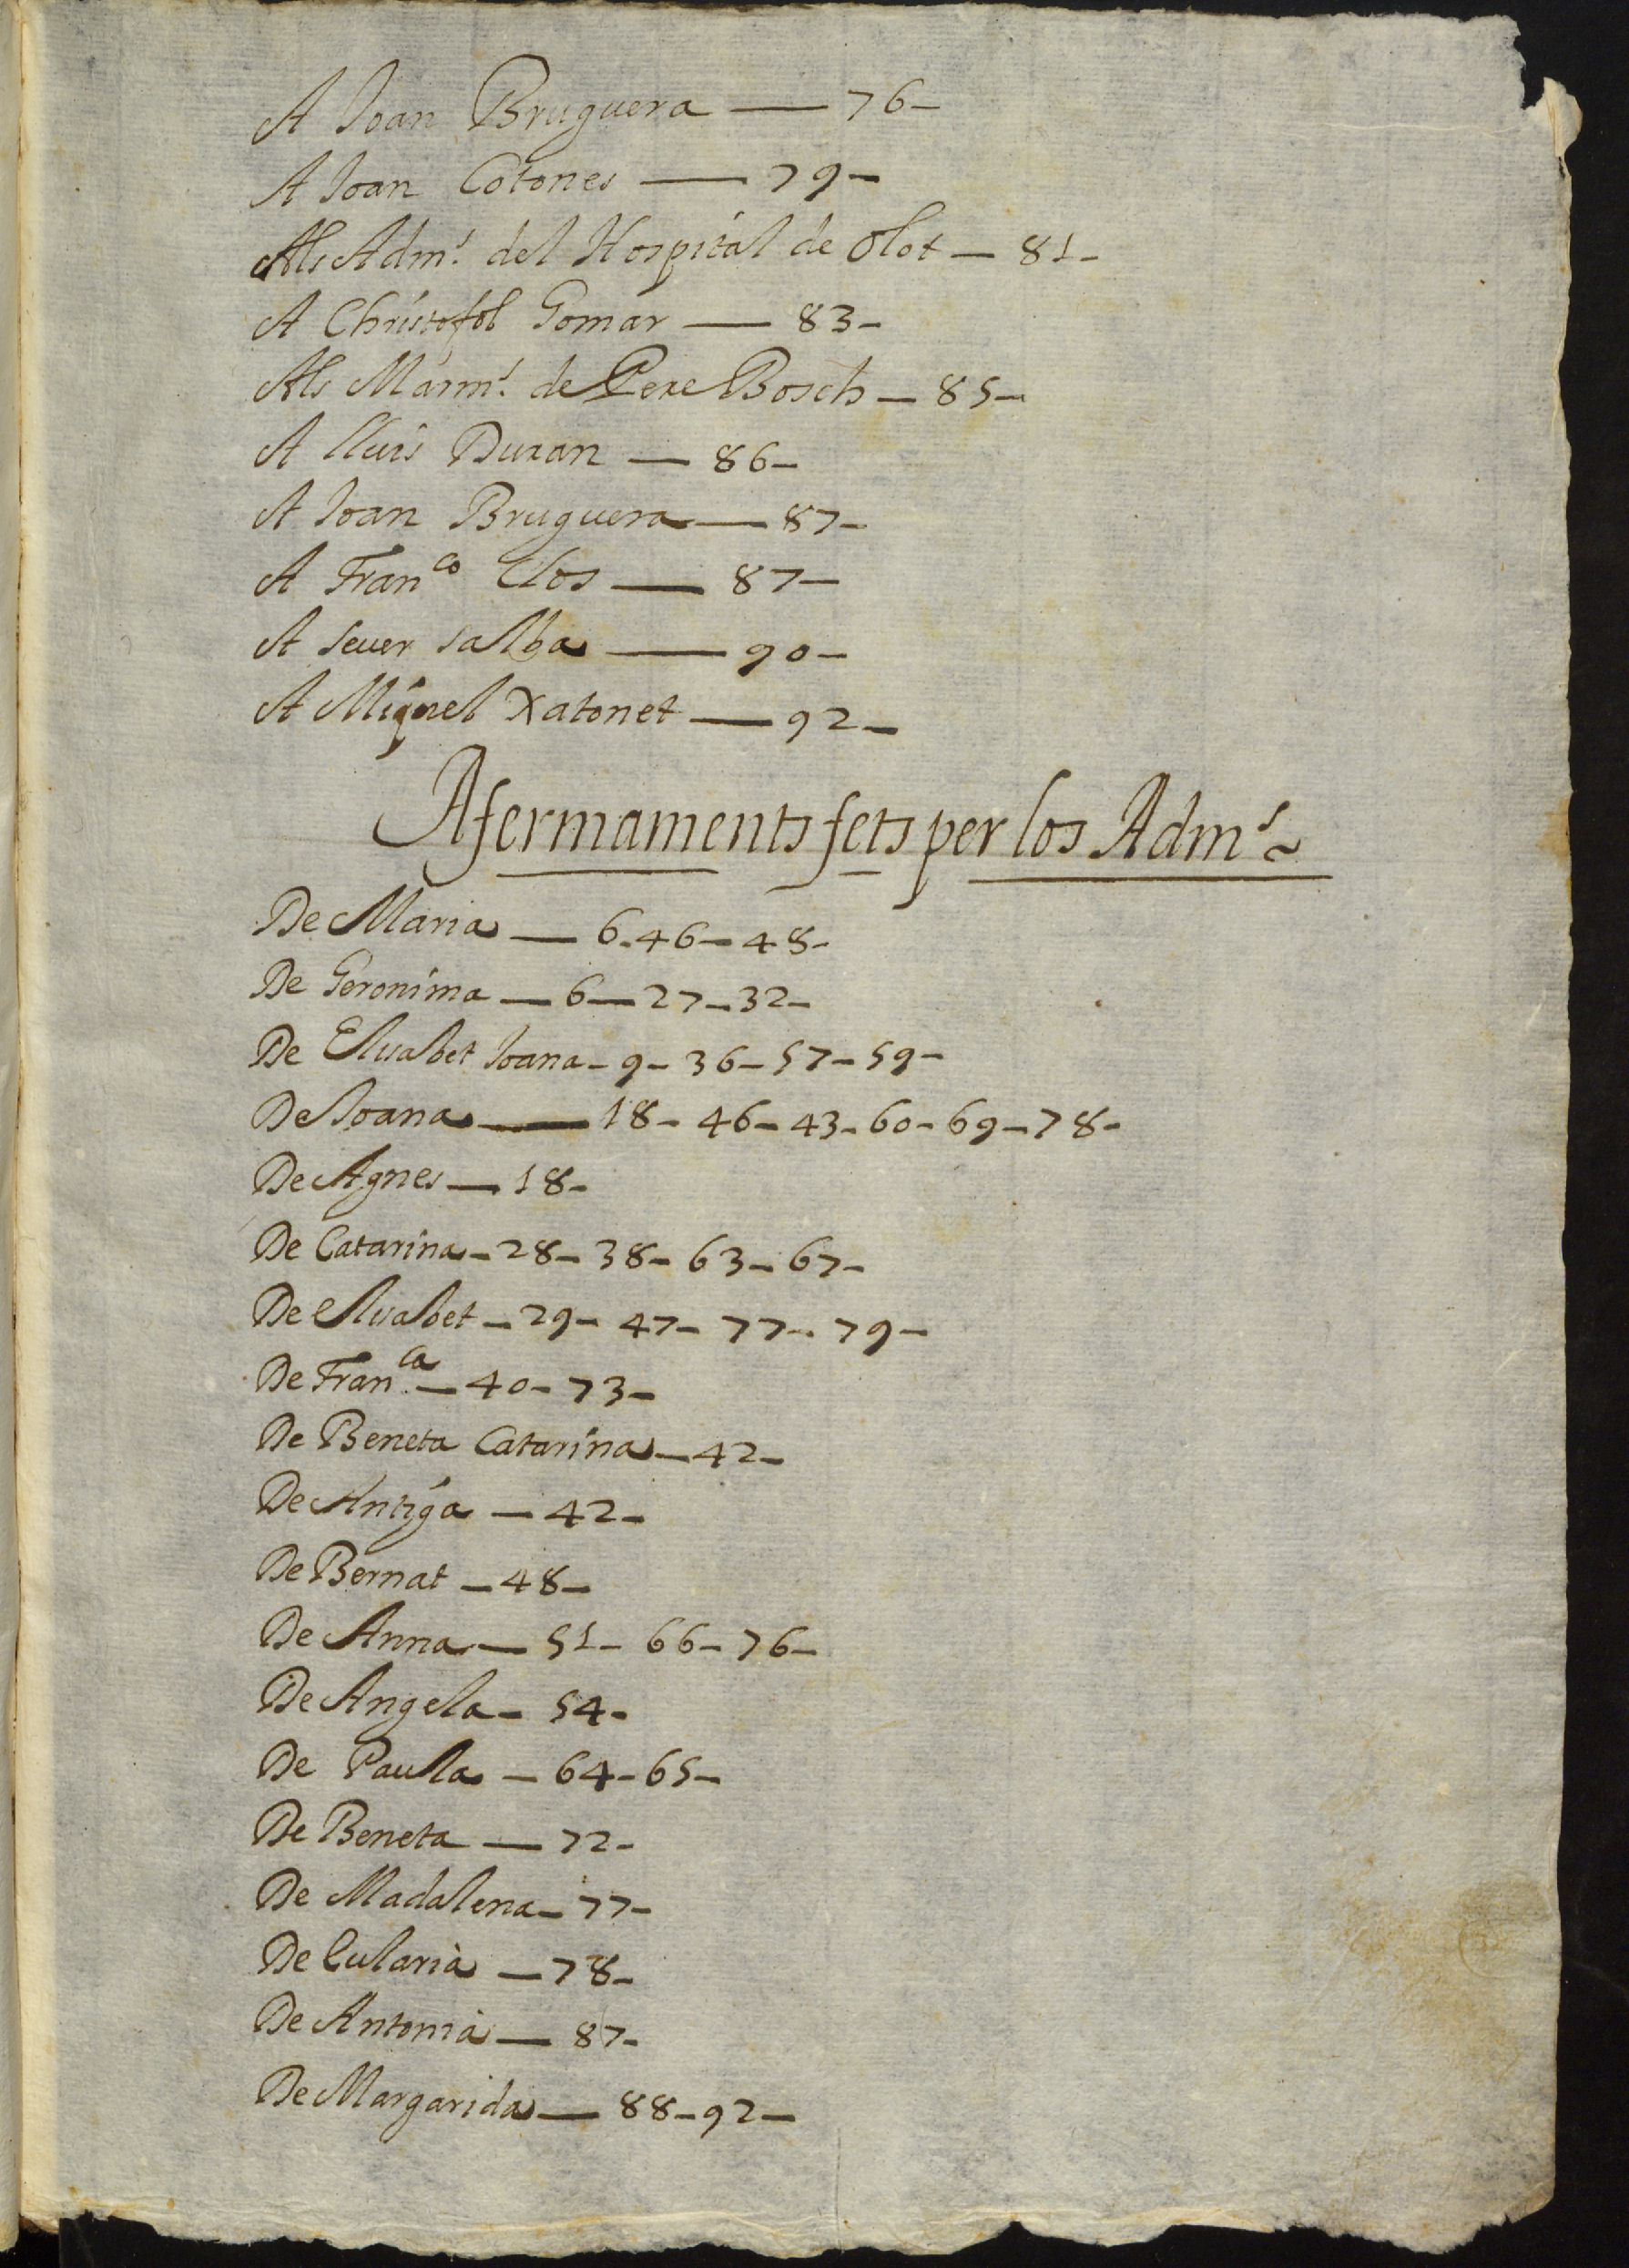 A Joan Bruguera — 76 –
A Joan Cotones — 79 –
Als Adm.s del Hospital de Olot — 81 –
A Christofol Gomar — 83 –
Als Marm.s de Pere Bosch — 85 –
A Lluis Duran — 86 –
A Joan Bruguera — 87 –
A Fran.co Clos — 87 –
A Sever Salba — 90 –
A Miquel Xatonet — 92 –
Afermaments fets per los Adm.s
De Maria — 6 . 46 – 48 –
De Geronima — 6 — 27 – 32 –
De Elisabet Joana – 9 – 36 – 57 – 59 –
De Joana — 18 – 46 – 43 – 60 – 69 – 78 –
De Agnes — 18 –
De Catarina – 28 – 38 – 63 – 67 –
De Elisabet – 29 – 47 – 77 – 79 –
De Fran.ca — 40 – 73 –
De Beneta Catarina — 42 –
De Antiga — 42 –
De Bernat – 48 –
De Anna — 51 – 66 – 76 –
De Angela – 54 –
De Paula — 64 – 65 –
De Beneta — 72 –
De Madalena – 77 –
De Eularia — 78 –
De Antonia — 87 –
De Margarida — 88 – 92 –